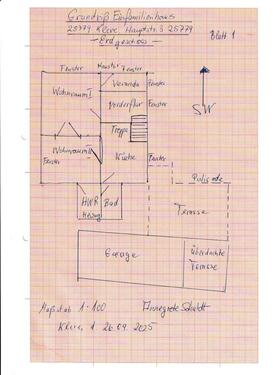 Grundriß Einfamilienhaus
25779 Kleve Hauptstr. 3 25779
- Erdgeschoss -
Blatt 1
Fenster Haustür Fenster
Veranda Fenster
Wohnraum I
Vorderflur Fenster
SW
Treppe
Wohnraum II
Fenster Küche Fenster
Palisade
HWR Bad
Heizung
Terrasse
Garage
Überdachte
Terrasse
Maßstab 1:100
Annegrete
Kleve, 26.09.2025